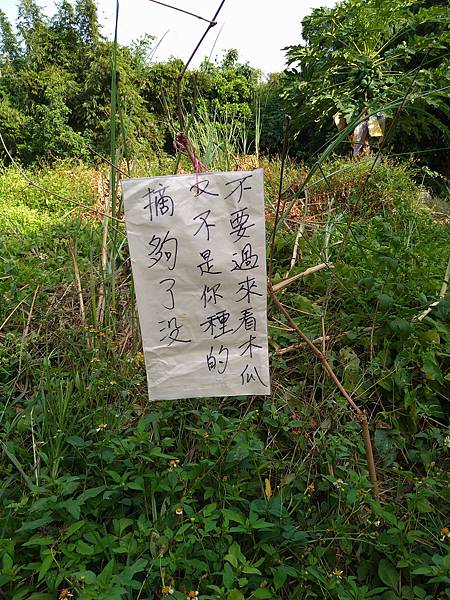 不要過來看木瓜
又不是你種的
摘夠了没